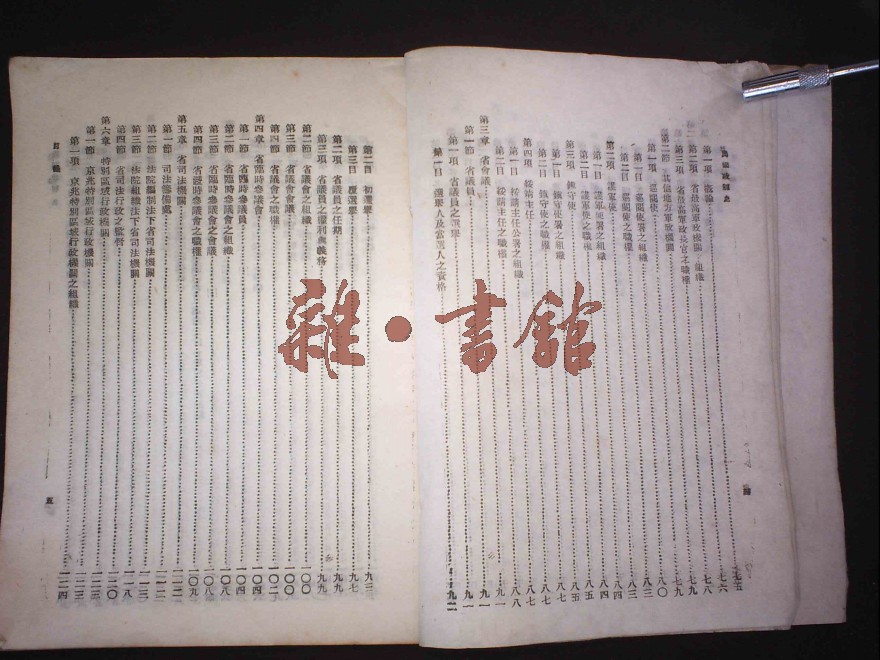 第一項 概論 七六
第二項 省最高軍政機關之組織 七八
第三項 省最高軍政長官之職權 七九
第二節 其他地方軍政機關 八〇
第一項 巡閱使 八三
第一目 巡閱使署之組織 八三
第二目 巡閱使之職權 八四
第二項 護軍使 八四
第一目 護軍使署之組織 八五
第二目 護軍使之職權 八五
第三項 鎮守使 八七
第一目 鎮守使署之組織 八七
第二目 鎮守使之職權 八七
第四項 綏靖主任 八八
第一目 綏靖主任公署之組織
第二目 綏靖主任之職權 九一
第三章 省會議 九一
第一節 省議會議員 九一
第一項 省議員之選舉
第一目 選舉人及當選人之資格 九二
第二目 初選舉 九三
第三目 覆選舉 九七
第二項 省議員之任期 九九
第三項 省議員之權利與義務 九九
第二節 省議會之組織 一〇〇
第三節 省議會會議 一〇〇
第四節 省議會之職權 一〇二
第四章 省臨時參議會 一〇四
第一節 省臨時參議員 一〇四
第二節 省臨時參議會之組織 一〇八
第三節 省臨時參議會之會議 一〇八
第四節 省臨時參議會之職權 一〇九
第五章 省司法機關 一一二
第一節 司法籌備處 一一二
第二節 法院編制法下省司法機關 一一三
第三節 法院組織法下省司法機關 一一八
第四節 省司法行政之監督 一二〇
第六章 特別區域行政機關 一二三
第一節 京兆特別區域行政機關 一二三
第一項 京兆特別區域行政機關之組織 一二四
目 錄
五
雜·書館